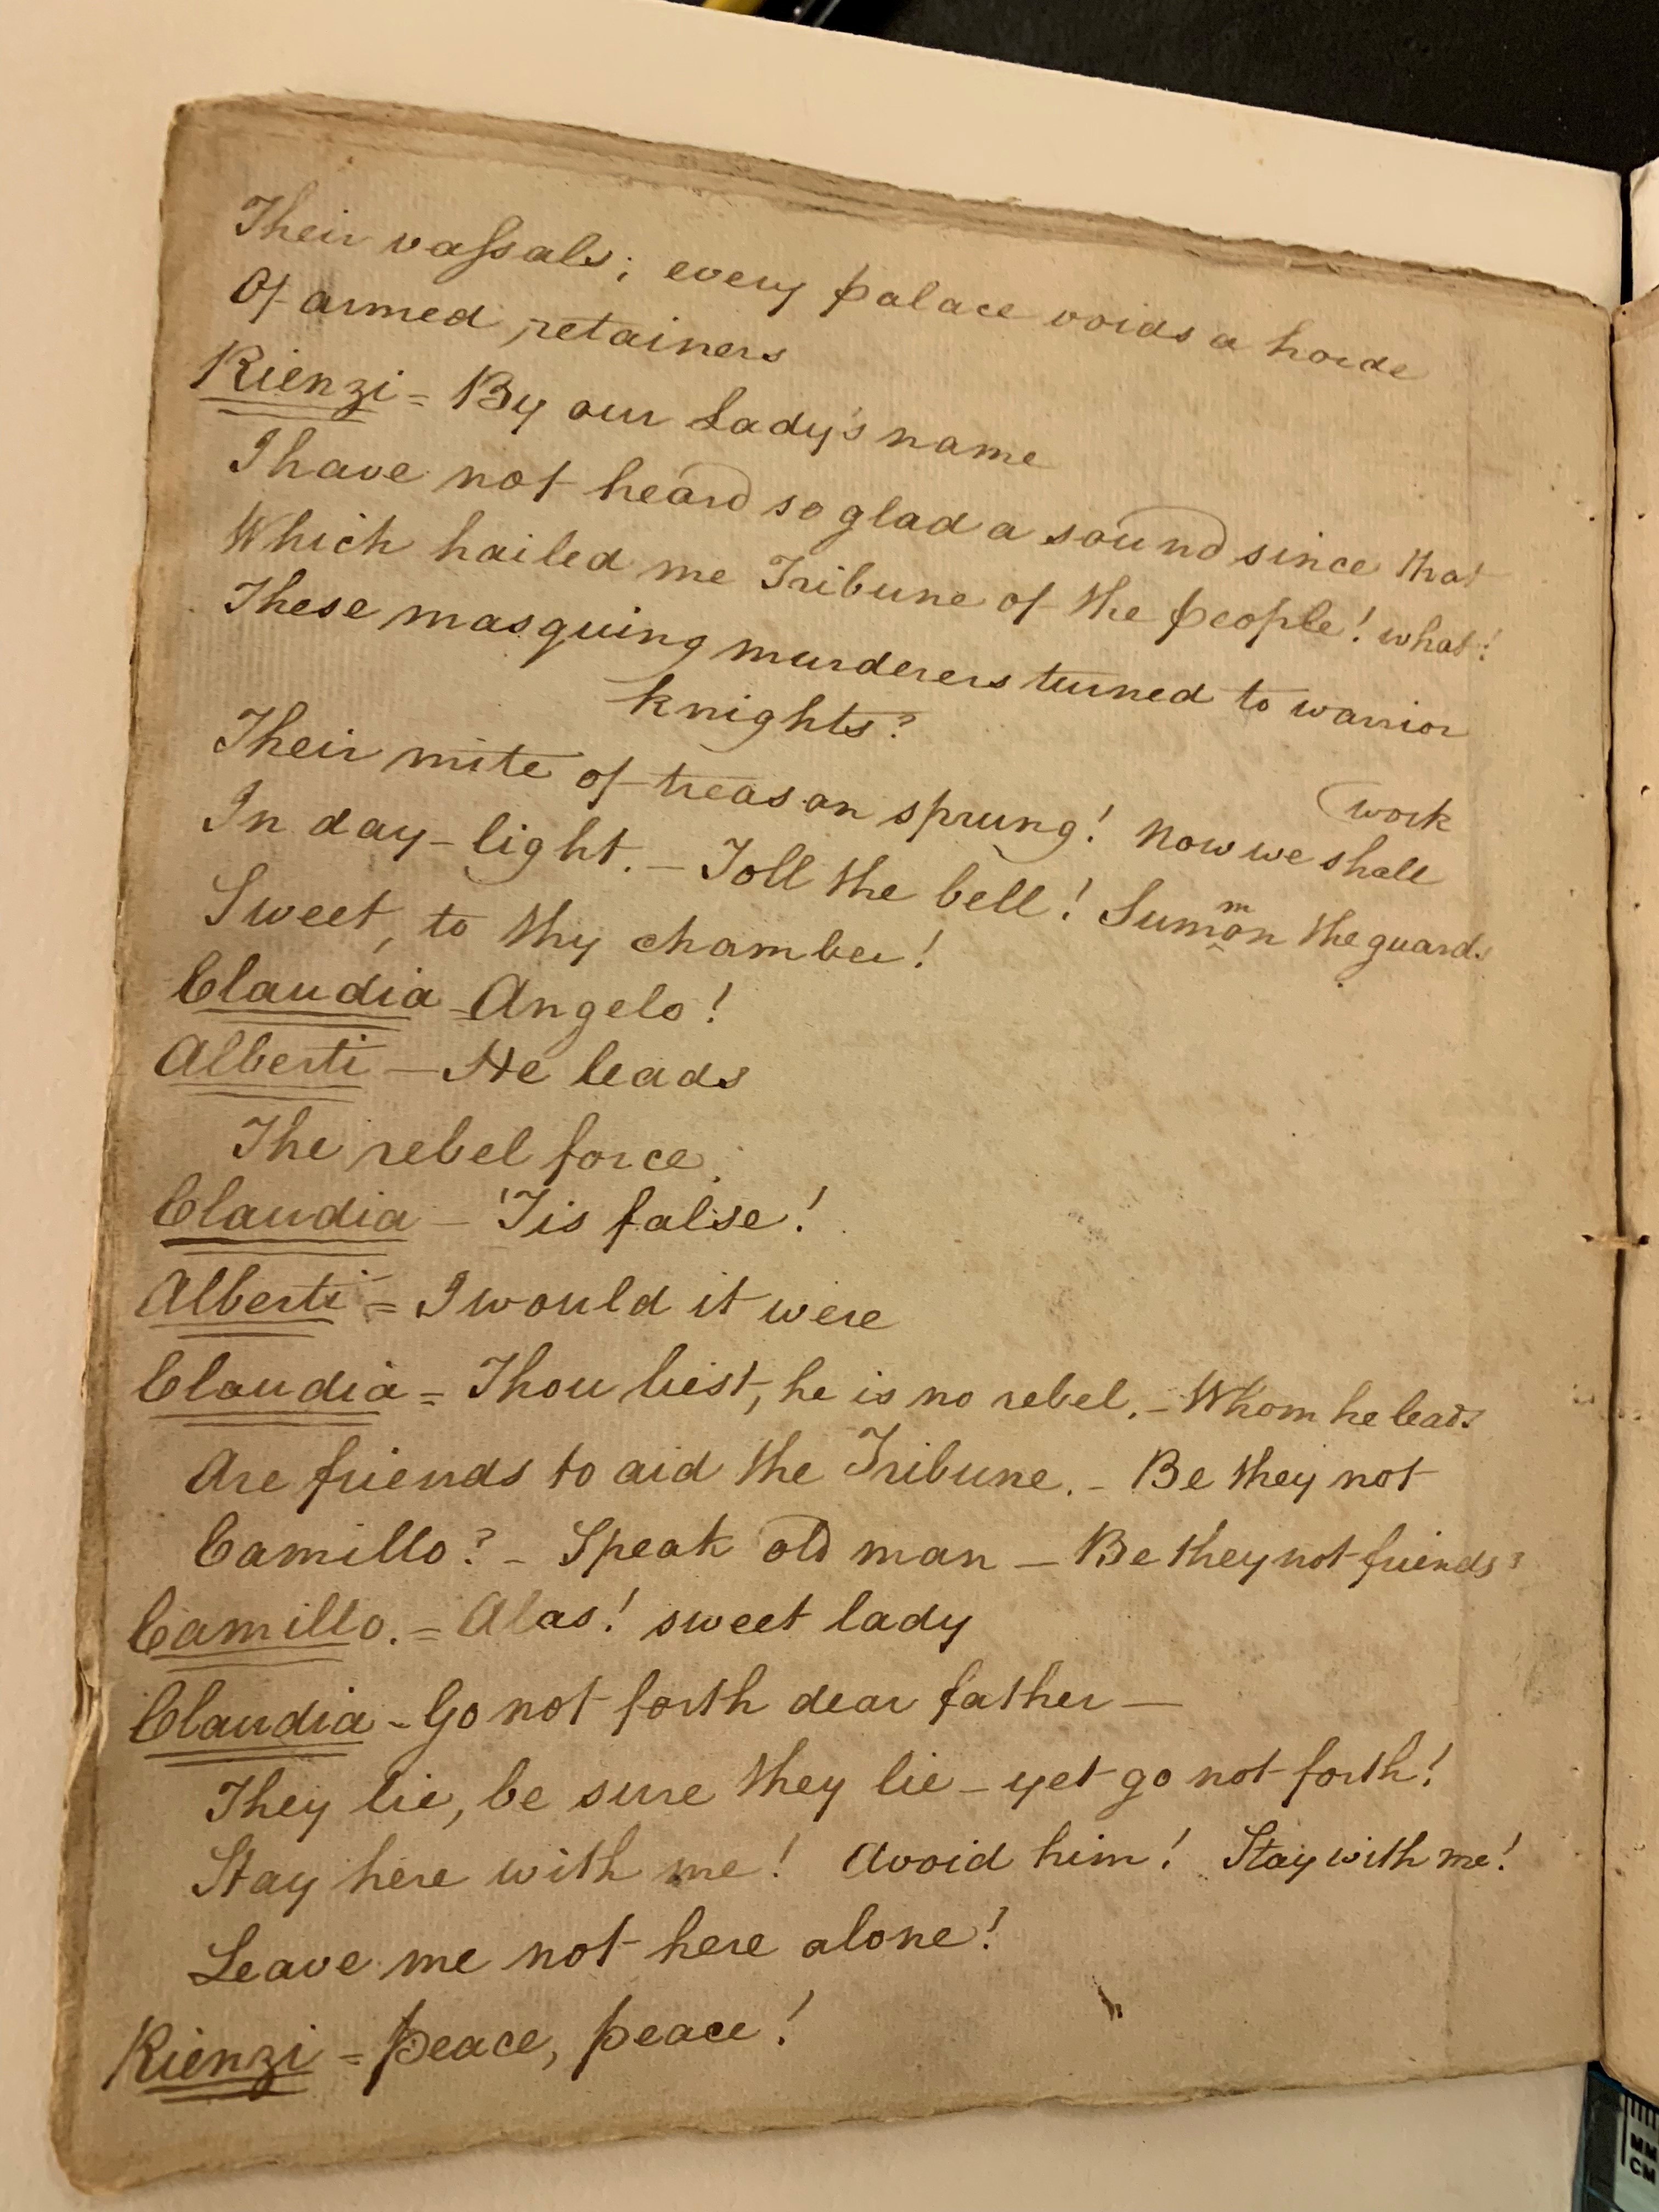 Their vaſsals; every palace voids a horde
Of armed retainers
Rienzi = By our Lady's name
I have not heard so glad a sound since that
Which hailed me Tribune of the people! what!
These masquing murderers turned to warrior
knights?
Their mite of treason sprung! Now we shall
work
In day-light. - Toll the bell! Summon the guard.
Sweet, to thy chamber!
Claudia - Angelo!
Alberti - He leads
The rebel force.
Claudia - 'Tis false!
Alberti = I would it were
Claudia = Thou liest, he is no rebel. - Whom he leads
Are friends to aid the Tribune. - Be they not
Camillo? - Speak old man - Be they not friends?
Camillo. = Alas! sweet lady
Claudia - Go not forth dear father -
They lie, be sure they lie - yet go not forth!
Stay here with me! Avoid him! Stay with me!
Leave me not here alone!
Rienzi = peace, peace!
MM
CM